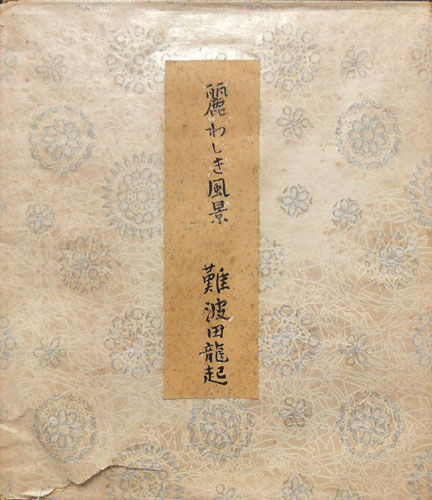 麗わしき風景 難波田龍起